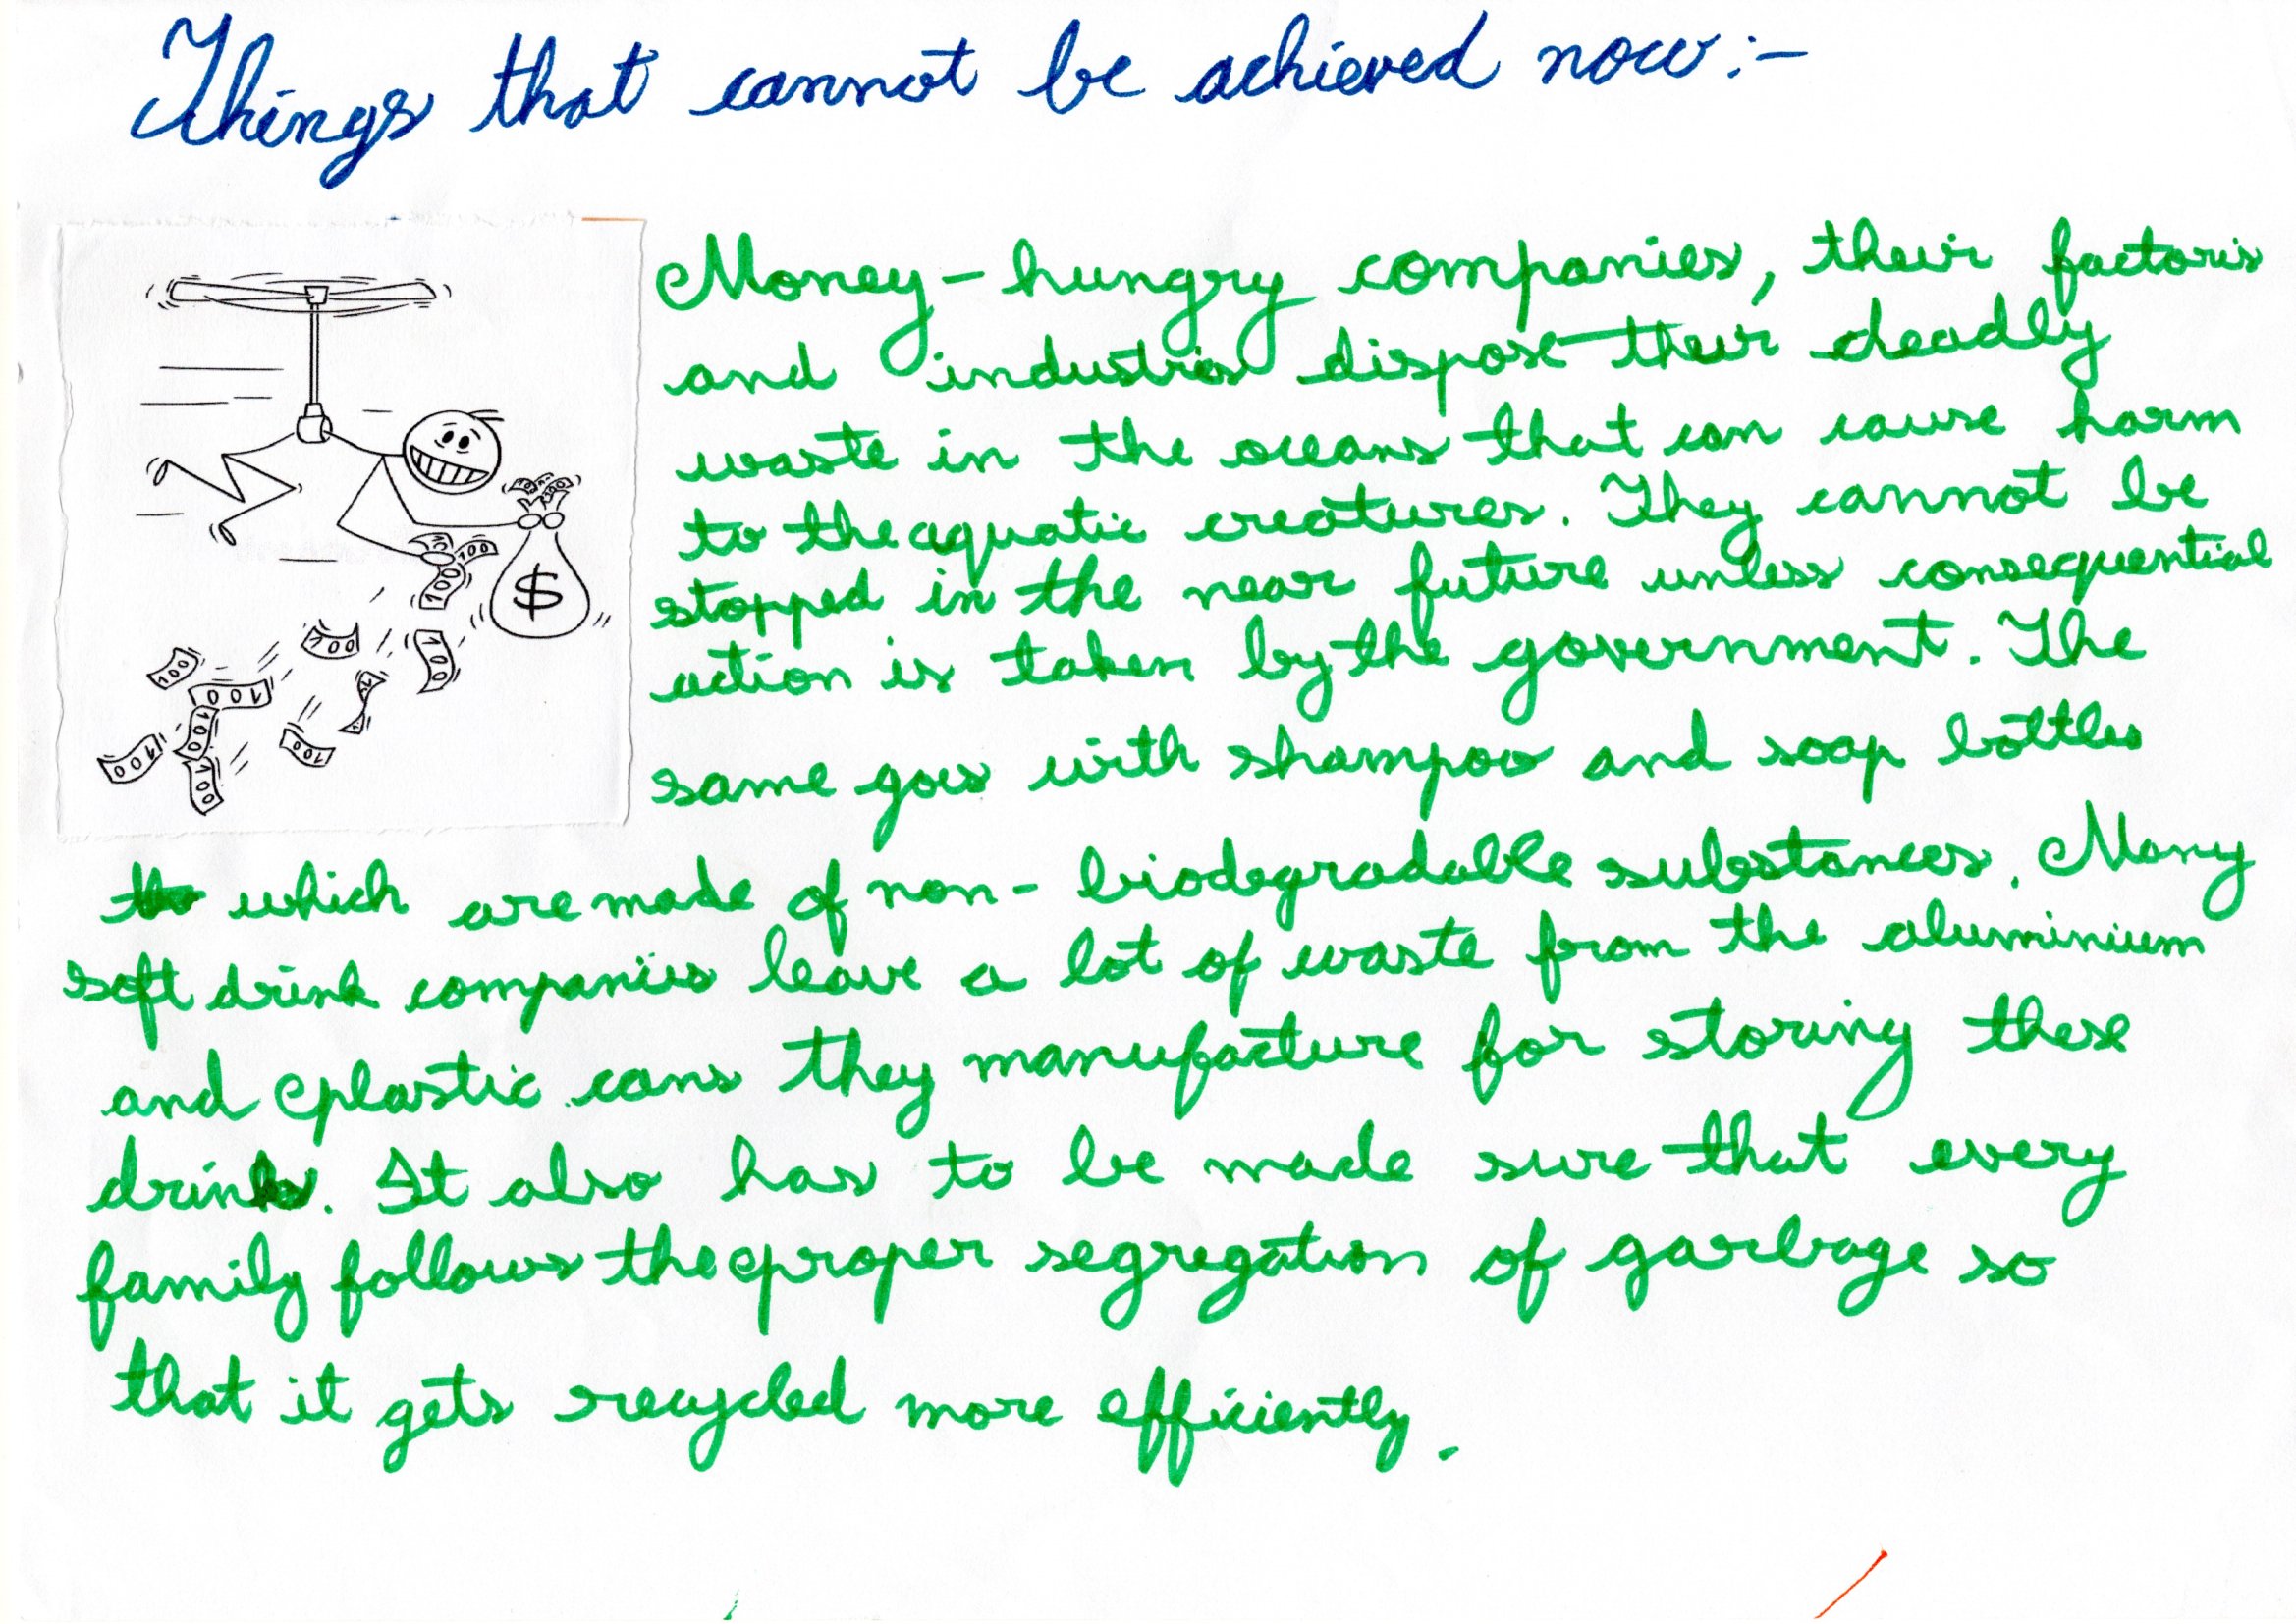 Things that cannot be achieved now:-
Money-hungry companies, their factoris
and industries dispose their deadly
waste in the oceans that can cause harm
to the aquatic creatures. They cannot be
stopped in the near future unless consequential
action is taken by the government. The
same goes with shampoo and soap bottles
which are made of non-biodegradable substances. Many
soft drink companies leave a lot of waste from the aluminium
and plastic cans they manufacture for storing these
drinks. It also has to be made sure that every
family follows the proper segregation of garbage so
that it gets recycled more efficiently.
$
100
100
100
100
100
100
100
100
100
100